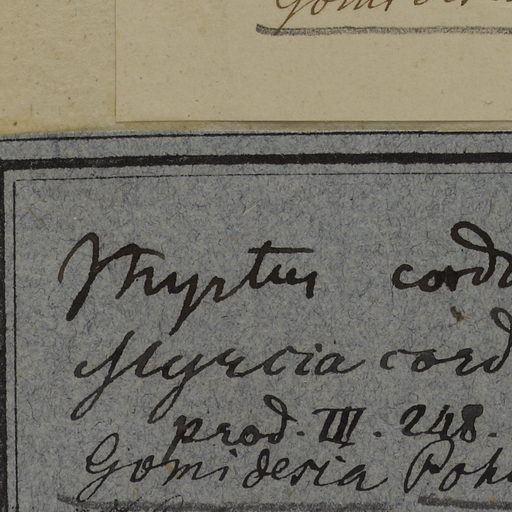 Myrtus cord
Myrcia cord
prod. III. 248.
Gomidesia Poh